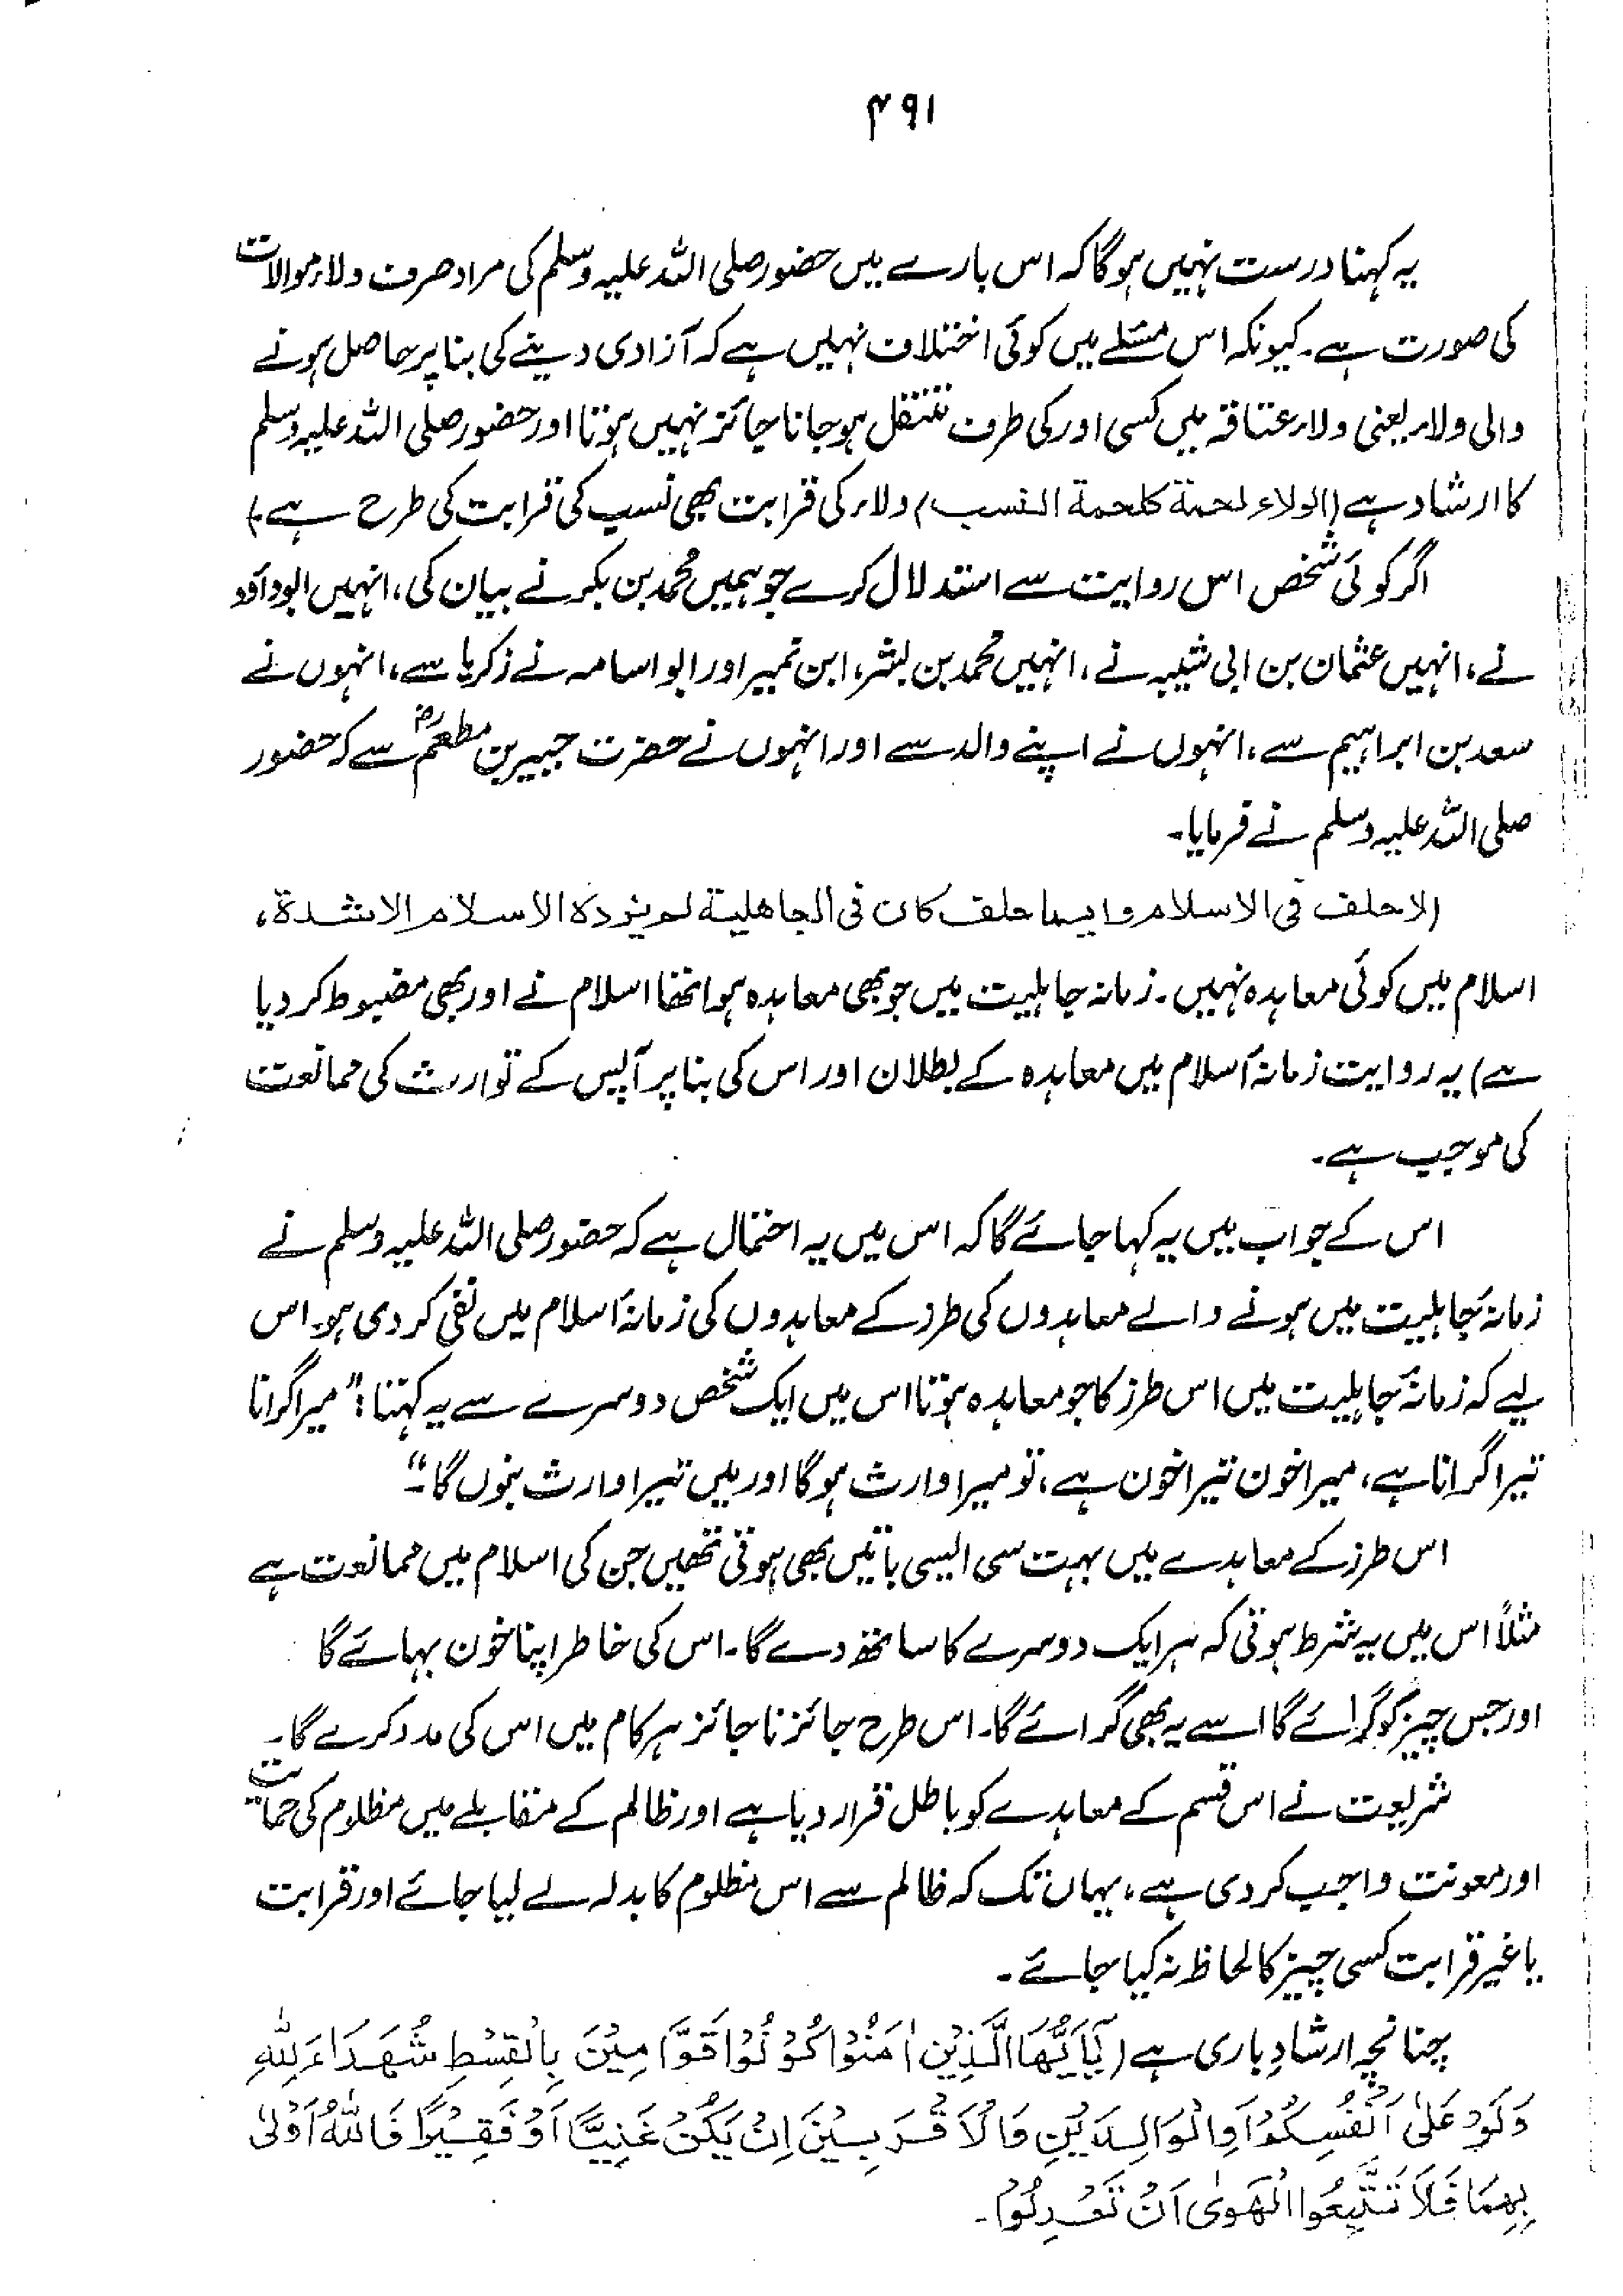 ۴۹۱
یہ کہنا درست نہیں ہوگا کہ اس بارے میں حضور صلی اللہ علیہ وسلم کی مراد صرف ولاء موالات
کی صورت ہے۔ کیونکہ اس مسئلے میں کوئی اختلاف نہیں ہے کہ آزادی دینے کی بنا پر حاصل ہونے
والی ولاء یعنی ولاء عتاقہ میں کسی اور کی طرف منتقل ہو جانا جائز نہیں ہوتا اور حضور صلی اللہ علیہ وسلم
کا ارشاد ہے (الولاء لحمة کلحمة النسب) ولاء کی قرابت بھی نسب کی قرابت کی طرح ہے)
اگر کوئی شخص اس روایت سے استدلال کرے جو ہمیں محمد بن بکر نے بیان کی، انہیں ابوداؤد
نے، انہیں عثمان بن ابی شیبہ نے، انہیں محمد بن بشر، ابن نمیر اور ابو اسامہ نے زکریا سے، انہوں نے
سعد بن ابراہیم سے، انہوں نے اپنے والد سے اور انہوں نے حضرت جبیر بن مطعمؓ سے کہ حضور
صلی اللہ علیہ وسلم نے فرمایا۔
(لا حلف فی الاسلام وایما حلف کان فی الجاھلیة لم یزدہ الاسلام الا شدة،
اسلام میں کوئی معاہدہ نہیں۔ زمانہ جاہلیت میں جو بھی معاہدہ ہوا تھا اسلام نے اور بھی مضبوط کر دیا
ہے) یہ روایت زمانۂ اسلام میں معاہدہ کے بطلان اور اس کی بنا پر آپس کے توارث کی ممانعت
کی موجب ہے۔
اس کے جواب میں یہ کہا جائے گا کہ اس میں یہ احتمال ہے کہ حضور صلی اللہ علیہ وسلم نے
زمانۂ جاہلیت میں ہونے والے معاہدوں کی طرز کے معاہدوں کی زمانۂ اسلام میں نفی کر دی ہو۔ اس
لیے کہ زمانۂ جاہلیت میں اس طرز کا جو معاہدہ ہوتا اس میں ایک شخص دوسرے سے یہ کہتا: "میرا گرانا
تیرا گرانا ہے، میرا خون تیرا خون ہے، تو میرا وارث ہوگا اور میں تیرا وارث بنوں گا۔"
اس طرز کے معاہدے میں بہت سی ایسی باتیں بھی ہوتی تھیں جن کی اسلام میں ممانعت ہے
مثلاً اس میں یہ شرط ہوتی کہ ہر ایک دوسرے کا ساتھ دے گا۔ اس کی خاطر اپنا خون بہائے گا
اور جس چیز کو گرائے گا اسے یہ بھی گرائے گا۔ اس طرح جائز ناجائز ہر کام میں اس کی مدد کرے گا۔
شریعت نے اس قسم کے معاہدے کو باطل قرار دیا ہے اور ظالم کے مقابلے میں مظلوم کی حمایت
اور معونت واجب کر دی ہے، یہاں تک کہ ظالم سے اس مظلوم کا بدلہ لے لیا جائے اور قرابت
یا غیر قرابت کسی چیز کا لحاظ نہ کیا جائے۔
چنانچہ ارشادِ باری ہے (یٰٓاَیُّہَا الَّذِیْنَ اٰمَنُوْا کُوْنُوْا قَوَّامِیْنَ بِالْقِسْطِ شُھَدَآءَ لِلّٰہِ
وَلَوْ عَلٰی اَنْفُسِکُمْ اَوِ الْوَالِدَیْنِ وَالْاَقْرَبِیْنَ اِنْ یَّکُنْ غَنِیًّا اَوْ فَقِیْرًا فَاللّٰہُ اَوْلٰی
بِہِمَا فَلَا تَتَّبِعُوا الْھَوٰی اَنْ تَعْدِلُوْا۔